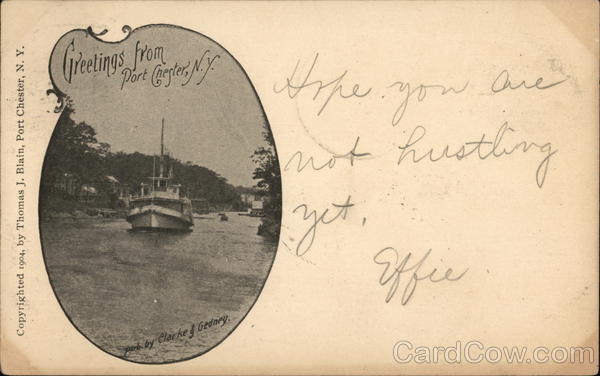 Greetings from
Port Chester, N.Y.
Copyrighted 1904, by Thomas J. Blain, Port Chester, N. Y.
pub. by Clarke & Gedney.
Hope you are
not hustling
yet.
Effie
CardCow.com